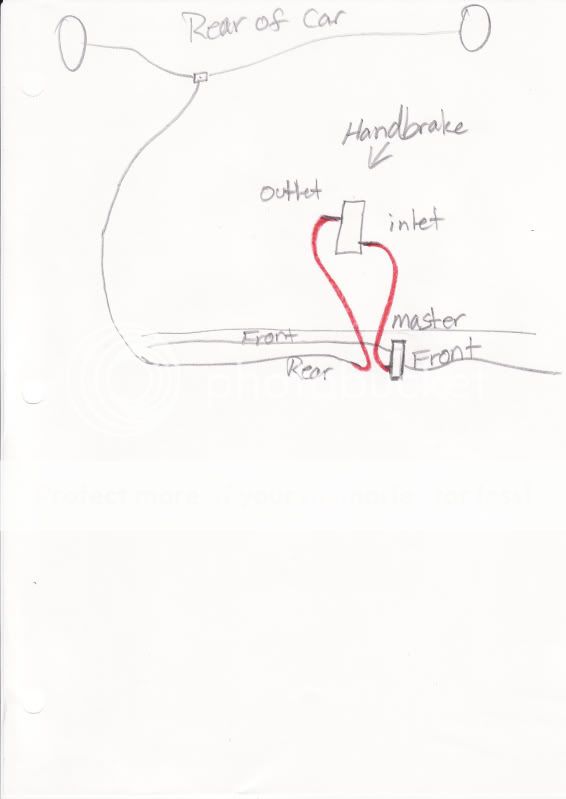 Rear of Car
Handbrake
outlet
inlet
master
Front
Front
Rear
photobucket
Protect more of your memories for less!